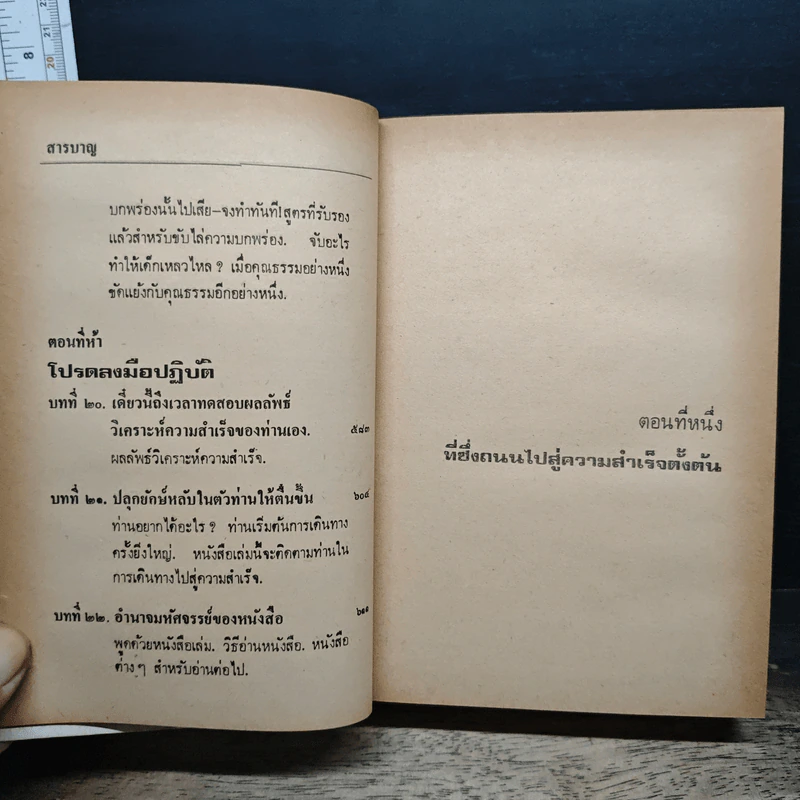 8
21
20
สารบาญ
บกพร่องนั้นไปเสีย–จงทำทันที! สูตรที่รับรอง
แล้วสำหรับขับไล่ความบกพร่อง. จับอะไร
ทำให้เด็กเหลวไหล ? เมื่อคุณธรรมอย่างหนึ่ง
ขัดแย้งกับคุณธรรมอีกอย่างหนึ่ง.
ตอนที่ห้า
โปรดลงมือปฏิบัติ
บทที่ ๒๐. เดี๋ยวนี้ถึงเวลาทดสอบผลลัพธ์
วิเคราะห์ความสำเร็จของท่านเอง. ๕๘๓
ผลลัพธ์วิเคราะห์ความสำเร็จ.
บทที่ ๒๑. ปลุกยักษ์หลับในตัวท่านให้ตื่นขึ้น ๖๐๔
ท่านอยากได้อะไร ? ท่านเริ่มต้นการเดินทาง
ครั้งยิ่งใหญ่. หนังสือเล่มนี้จะติดตามท่านใน
การเดินทางไปสู่ความสำเร็จ.
บทที่ ๒๒. อำนาจมหัศจรรย์ของหนังสือ ๖๑๑
พูดด้วยหนังสือเล่ม. วิธีอ่านหนังสือ. หนังสือ
ต่าง ๆ สำหรับอ่านต่อไป.
ตอนที่หนึ่ง
ที่ซึ่งถนนไปสู่ความสำเร็จตั้งต้น